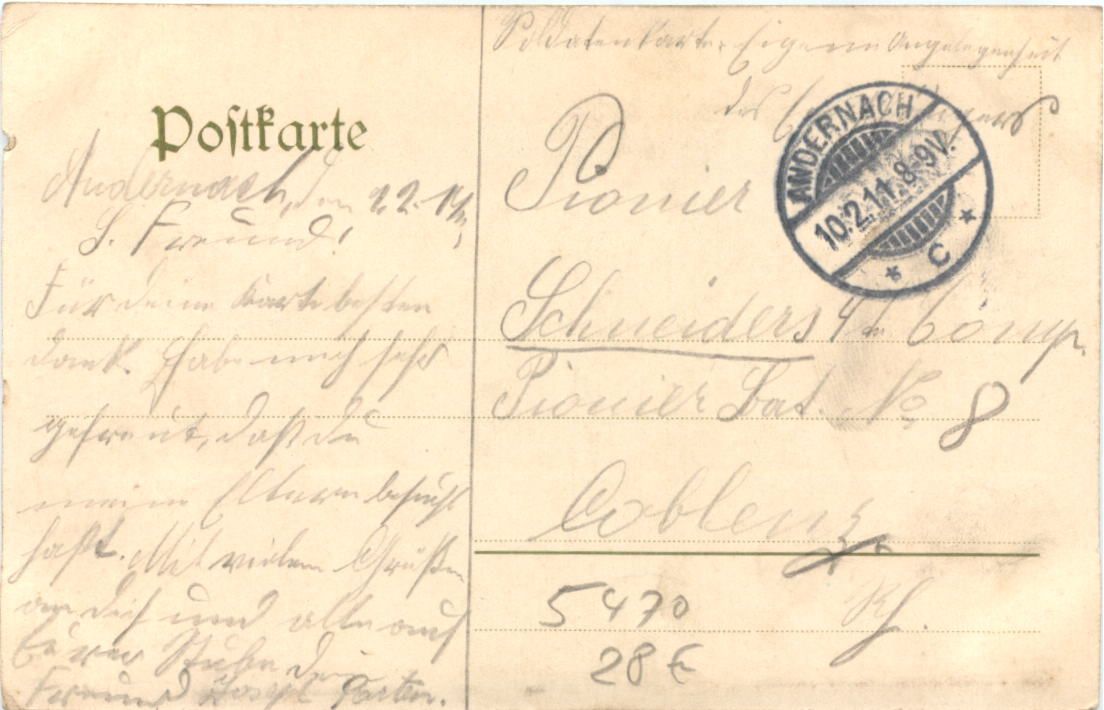 Postkarte
Andernach, den 9.2.11.
L. Freund!
Für deine Karte besten
Dank. Habe mich sehr
gefreut, daß du
meine Eltern besucht
hast. Mit vielen Grüßen
an dich und alle auf
Eurer Stube dein
Freund Josef
Soldatenkarte. Eigene Angelegenheit
des Empfängers
ANDERNACH
10.2.11.8-9V.
* C *
Pionier
Schneiders 4te Comp.
Pionier Bat. No 8
Coblenz
Rh.
5470
28 €